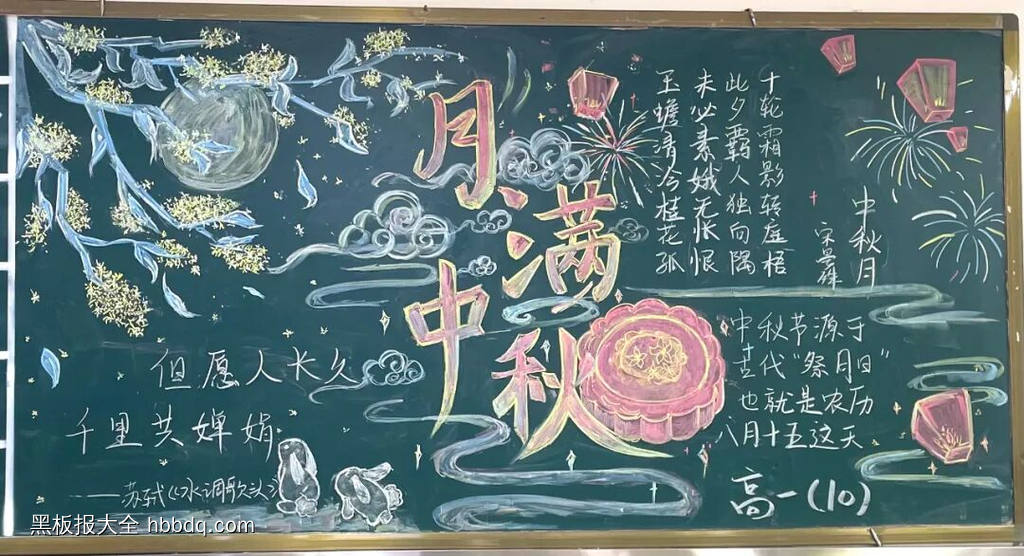 月满
中秋
中秋月
宋 晏殊
十轮霜影转庭梧
此夕羁人独向隅
未必素娥无怅恨
玉蟾清冷桂花孤
中秋节源于
古代“祭月日”
也就是农历
八月十五这天
高一(10)
但愿人长久
千里共婵娟
——苏轼《水调歌头》
黑板报大全 hbbdq.com